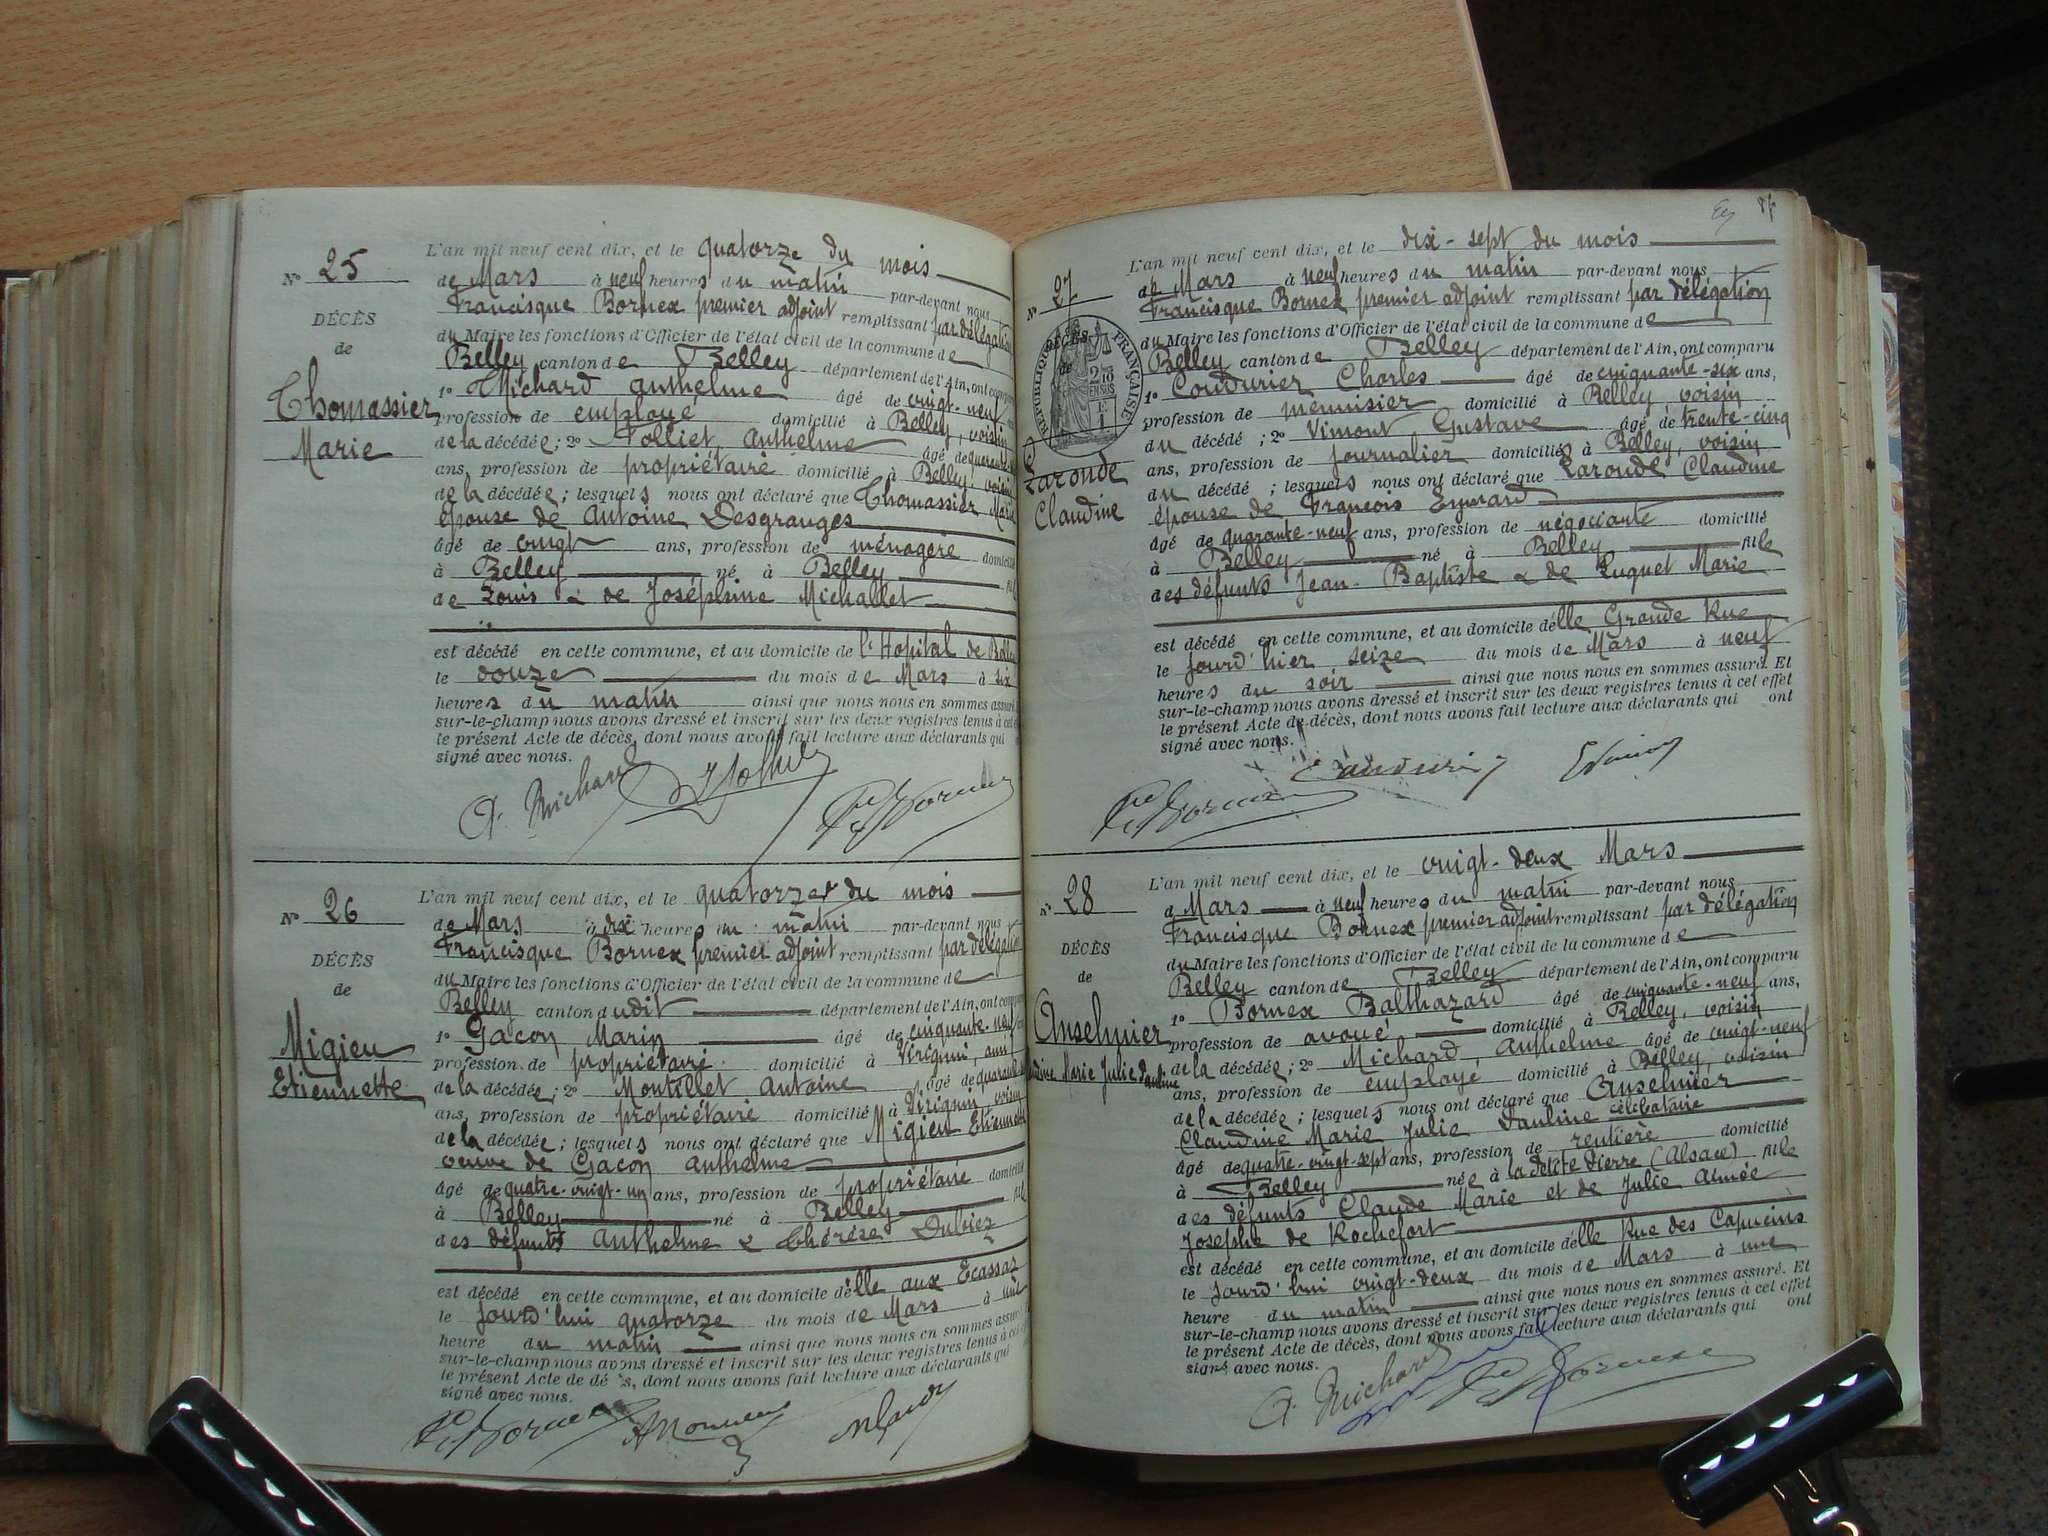 N° 25
DÉCÈS
de
Thomassier
Marie
L'an mil neuf cent dix, et le quatorze du mois
de Mars à neuf heures du matin par-devant nous
Francisque Bornex premier adjoint remplissant par délégation
du Maire les fonctions d'Officier de l'état civil de la commune de
Belley canton de Belley département de l'Ain, ont comparu
1° Michard Anthelme âgé de vingt-neuf
profession de employé domicilié à Belley, voisin
de la décédée; 2° Tolliet Anthelme âgé de
ans, profession de propriétaire domicilié à Belley, voisin
de la décédée; lesquels nous ont déclaré que Thomassier Marie
épouse de Antoine Desgranges
âgé de vingt ans, profession de ménagère domicilié
à Belley né à Belley fil
de Louis & de Joséphine Michallet
est décédé en cette commune, et au domicile de l'Hopital de Belley
le douze du mois de Mars à six
heures du matin ainsi que nous nous en sommes assuré
sur-le-champ nous avons dressé et inscrit sur les deux registres tenus à cet
le présent Acte de décès, dont nous avons fait lecture aux déclarants qui
signé avec nous.
A. Michard
N° 26
DÉCÈS
de
Migieu
Etiennette
L'an mil neuf cent dix, et le quatorze du mois
de Mars à dix heures du matin par-devant nous
Francisque Bornex premier adjoint remplissant par délégation
du Maire les fonctions d'Officier de l'état civil de la commune de
Belley canton dudit département de l'Ain, ont comparu
1° Gacon Marin âgé de cinquante-neuf
profession de propriétaire domicilié à Virignin, ami
de la décédée; 2° Montillet Antoine âgé de quarante
ans, profession de propriétaire domicilié à Virignin, voisin
de la décédée; lesquels nous ont déclaré que Migieu Etiennette
veuve de Gacon Anthelme
âgé de quatre-vingt-un ans, profession de propriétaire domicilié
à Belley né à Belley fille
des défunts Anthelme & Thérèse Dubiez
est décédé en cette commune, et au domicile de lle aux Ecassaz
le jourd'hui quatorze du mois de Mars à une
heure du matin ainsi que nous nous en sommes assuré
sur-le-champ nous avons dressé et inscrit sur les deux registres tenus à cet
le présent Acte de décès, dont nous avons fait lecture aux déclarants qui
signé avec nous.
87
N° 27
DÉCÈS
de
RÉPUBLIQUE FRANÇAISE
2/10 EN SUS
Laronde
Claudine
L'an mil neuf cent dix, et le dix-sept du mois
de Mars à neuf heures du matin par-devant nous
Francisque Bornex premier adjoint remplissant par délégation
du Maire les fonctions d'Officier de l'état civil de la commune de
Belley canton de Belley département de l'Ain, ont comparu
1° Coudurier Charles âgé de cinquante-six ans,
profession de menuisier domicilié à Belley, voisin
du décédé; 2° Vimont Gustave âgé de trente-cinq
ans, profession de journalier domicilié à Belley, voisin
du décédé; lesquels nous ont déclaré que Laronde Claudine
épouse de François Eymard
âgé de quarante-neuf ans, profession de négociante domicilié
à Belley né à Belley fille
des défunts Jean-Baptiste & de Luquet Marie
est décédé en cette commune, et au domicile de lle Grande Rue
le jourd'hier seize du mois de Mars à neuf
heures du soir ainsi que nous nous en sommes assuré. Et
sur-le-champ nous avons dressé et inscrit sur les deux registres tenus à cet effet
le présent Acte de décès, dont nous avons fait lecture aux déclarants qui ont
signé avec nous.
N° 28
DÉCÈS
de
Anselmier
Claudine Marie Julie Pauline
L'an mil neuf cent dix, et le vingt-deux Mars
d Mars à neuf heures du matin par-devant nous
Francisque Bornex premier adjoint remplissant par délégation
du Maire les fonctions d'Officier de l'état civil de la commune de
Belley canton de Belley département de l'Ain, ont comparu
1° Bornex Balthazard âgé de cinquante-neuf ans,
profession de avoué domicilié à Belley, voisin
de la décédée; 2° Michard, Anthelme âgé de vingt-neuf
ans, profession de employé domicilié à Belley, voisin
de la décédée; lesquels nous ont déclaré que Anselmier
Claudine Marie Julie Pauline célibataire
âgé de quatre-vingt-sept ans, profession de rentière domicilié
à Belley née à la Petite Pierre (Alsace) fille
des défunts Claude Marie et de Julie Aimée
Josephe de Rochefort
est décédé en cette commune, et au domicile de lle Rue des Capucins
le jourd'hui vingt-deux du mois de Mars à une
heure du matin ainsi que nous nous en sommes assuré. Et
sur-le-champ nous avons dressé et inscrit sur les deux registres tenus à cet effet
le présent Acte de décès, dont nous avons fait lecture aux déclarants qui ont
signé avec nous.
A. Michard